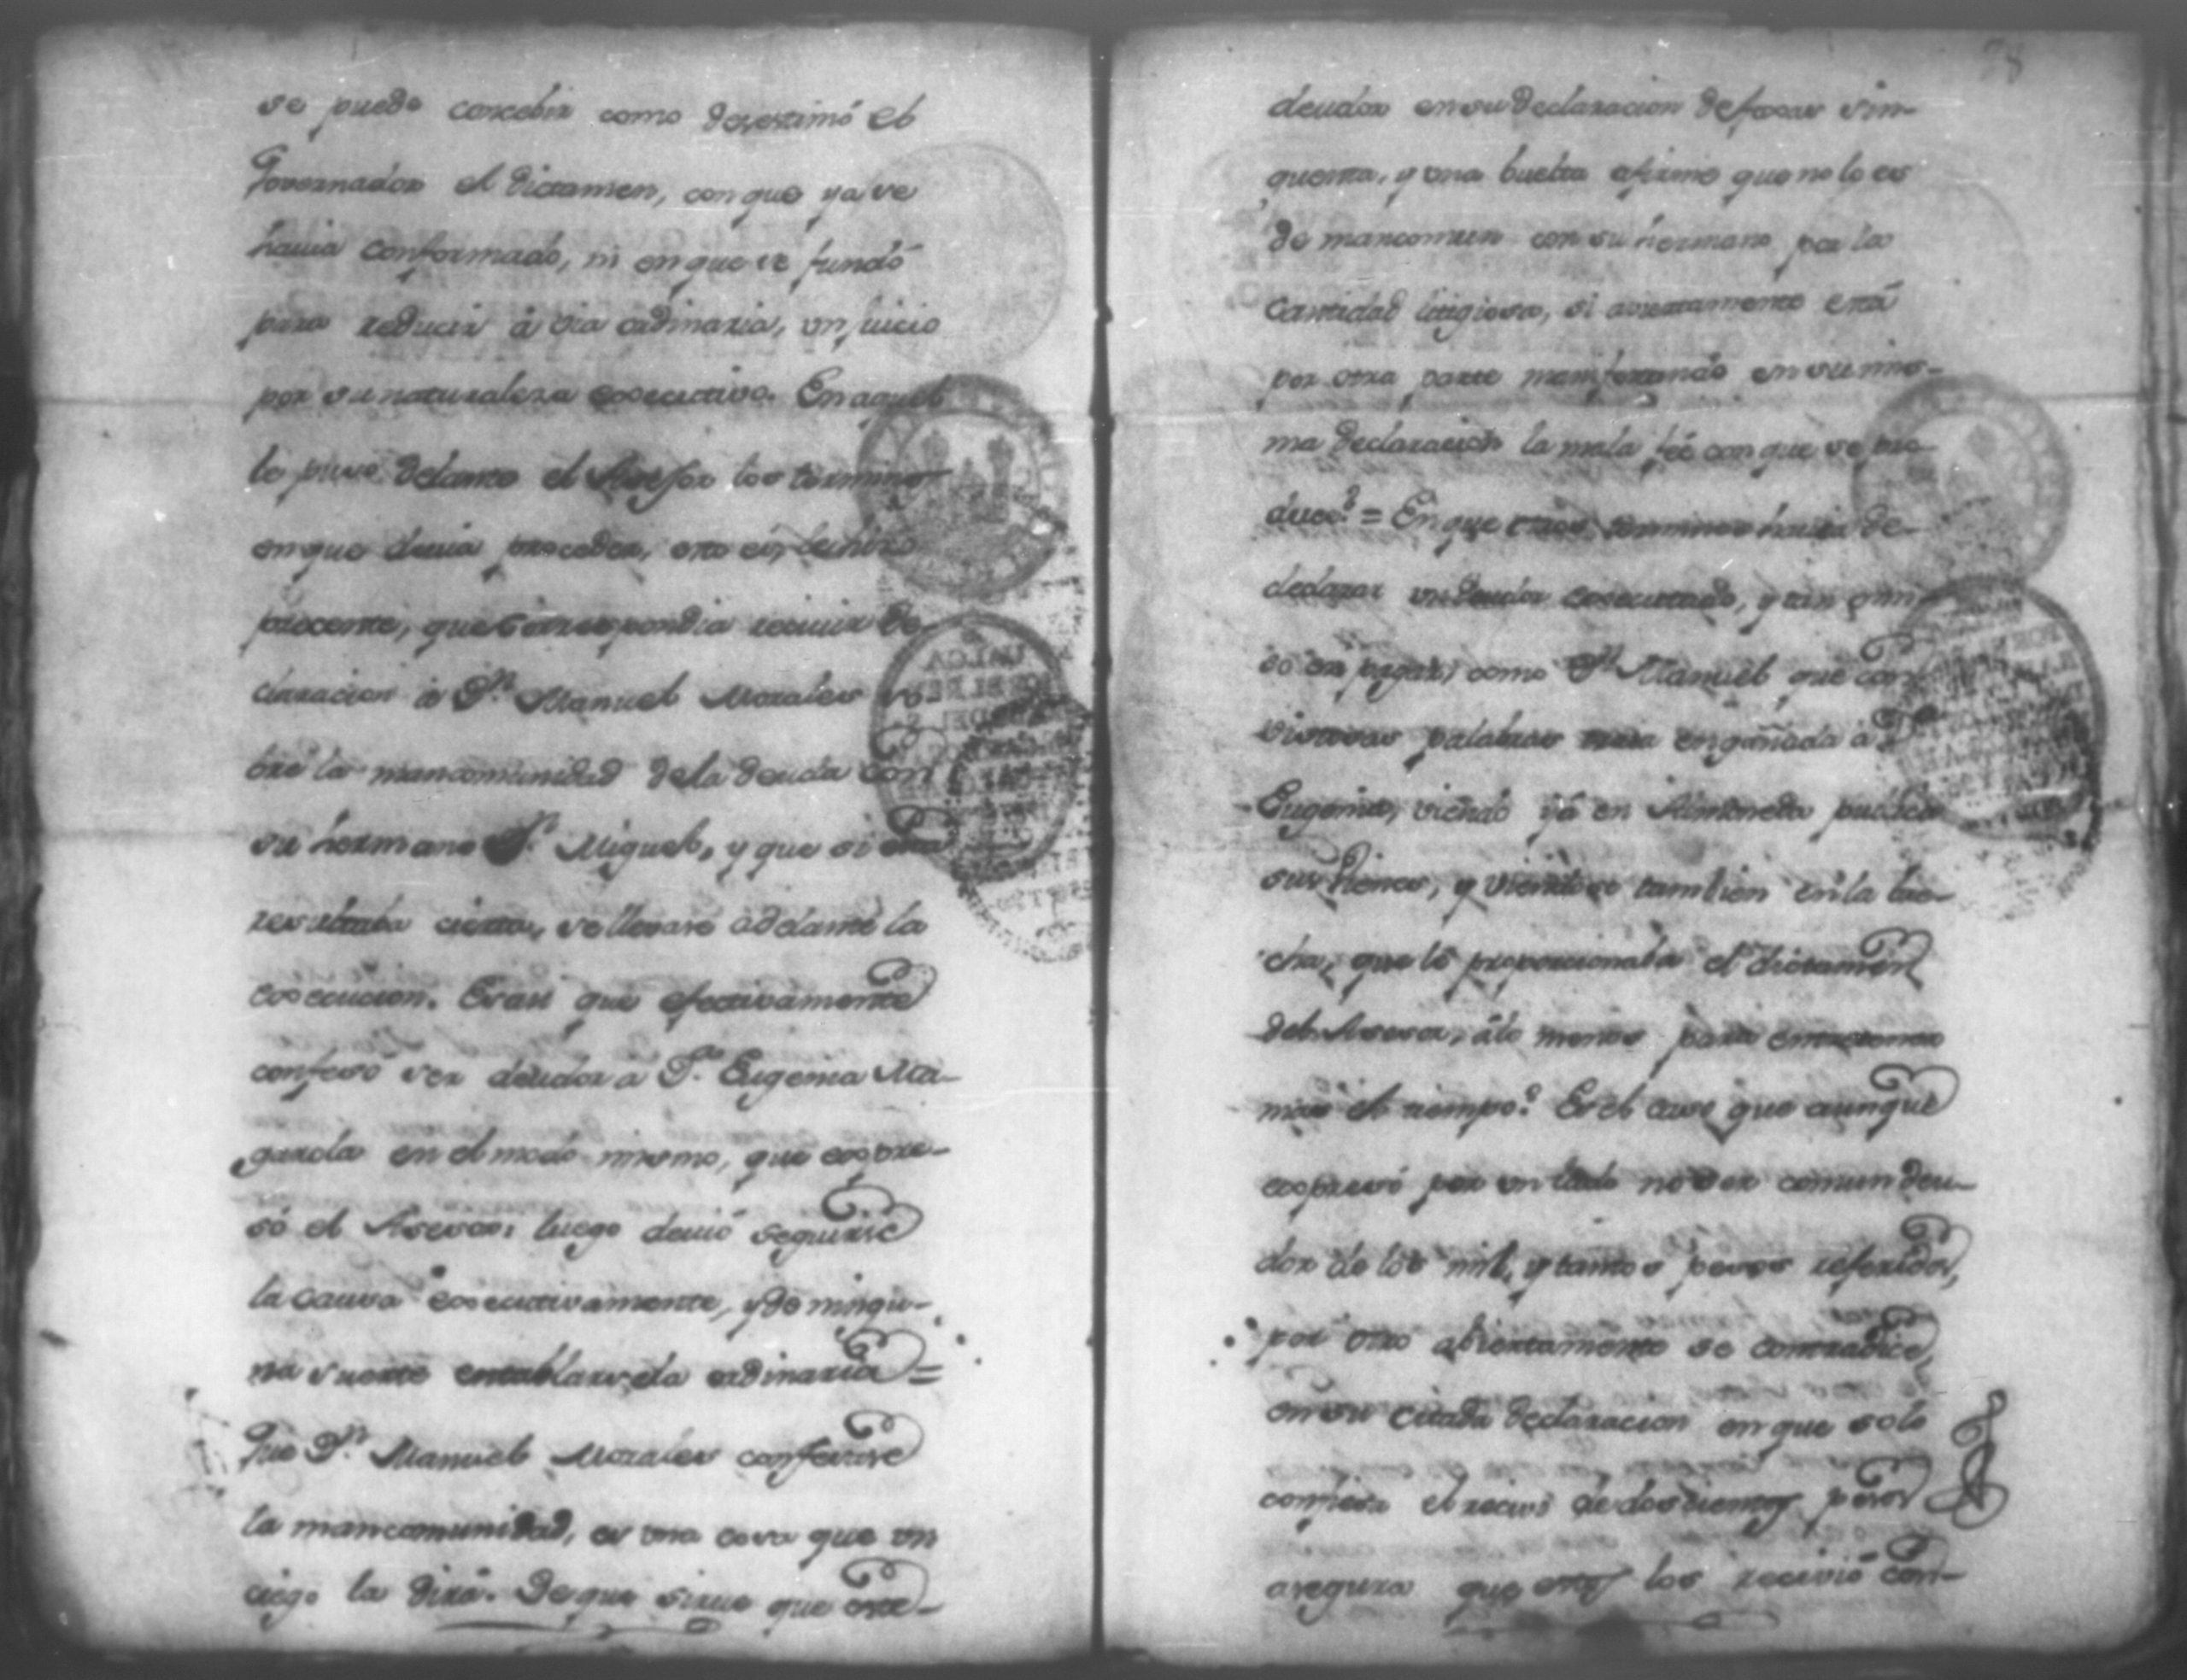 se puede concebir como desestimó el
Governador el dictamen, con que ya se
havia conformado, ni en que se fundó
para reducir à via ordinaria, un juicio
por su naturaleza executivo. En aquel
le puso delante el Asesor los terminos
en que devia proceder, esto es
que correspondia recivir de-
claracion à Dn. Manuel Morales so
bre la mancomunidad de la deuda con
su hermano Dn. Miguel, y que si esta
resultaba cierta, se llevase adelante la
execucion. Es asi que efectivamente
confesó ser deudor a Da. Eugenia Ma-
garola en el modo mismo, que expre-
só el Asesor: luego devió seguirse
la causa executivamente, y de ningu-
na suerte entablarse la ordinaria =
Que Dn. Manuel Morales confesase
la mancomunidad, es una cosa que un
ciego la dirá. De que sirve que este
78
deudor en su declaracion de foxas sin-
quenta, y una buelta afirme que no lo es
de mancomun con su hermano por la
cantidad litigiosa, si aviertamente está
por otra parte manifestando en su mis-
ma declaracion la mala fée con que se pro-
duce? = En que otros terminos havia de
declarar un deudor executado, y tan
so en pagar, como Dn. Manuel que con
vistosas palabras engañada à Da.
Eugenia, viendo yá en Almoneda publica
sus vienes, y viendose tambien en la
que le proporcionaba el dictamen
del Asesor, à lo menos para
mas el tiempo? Es el caso que aunque
expresó por un lado no ser comun deu-
dor de los mil, y tantos pesos referidos,
por otro abiertamente se contradice,
en su citada declaracion en que solo
confiesa el recivo de doscientos pesos
asegura que estos los recivió con-